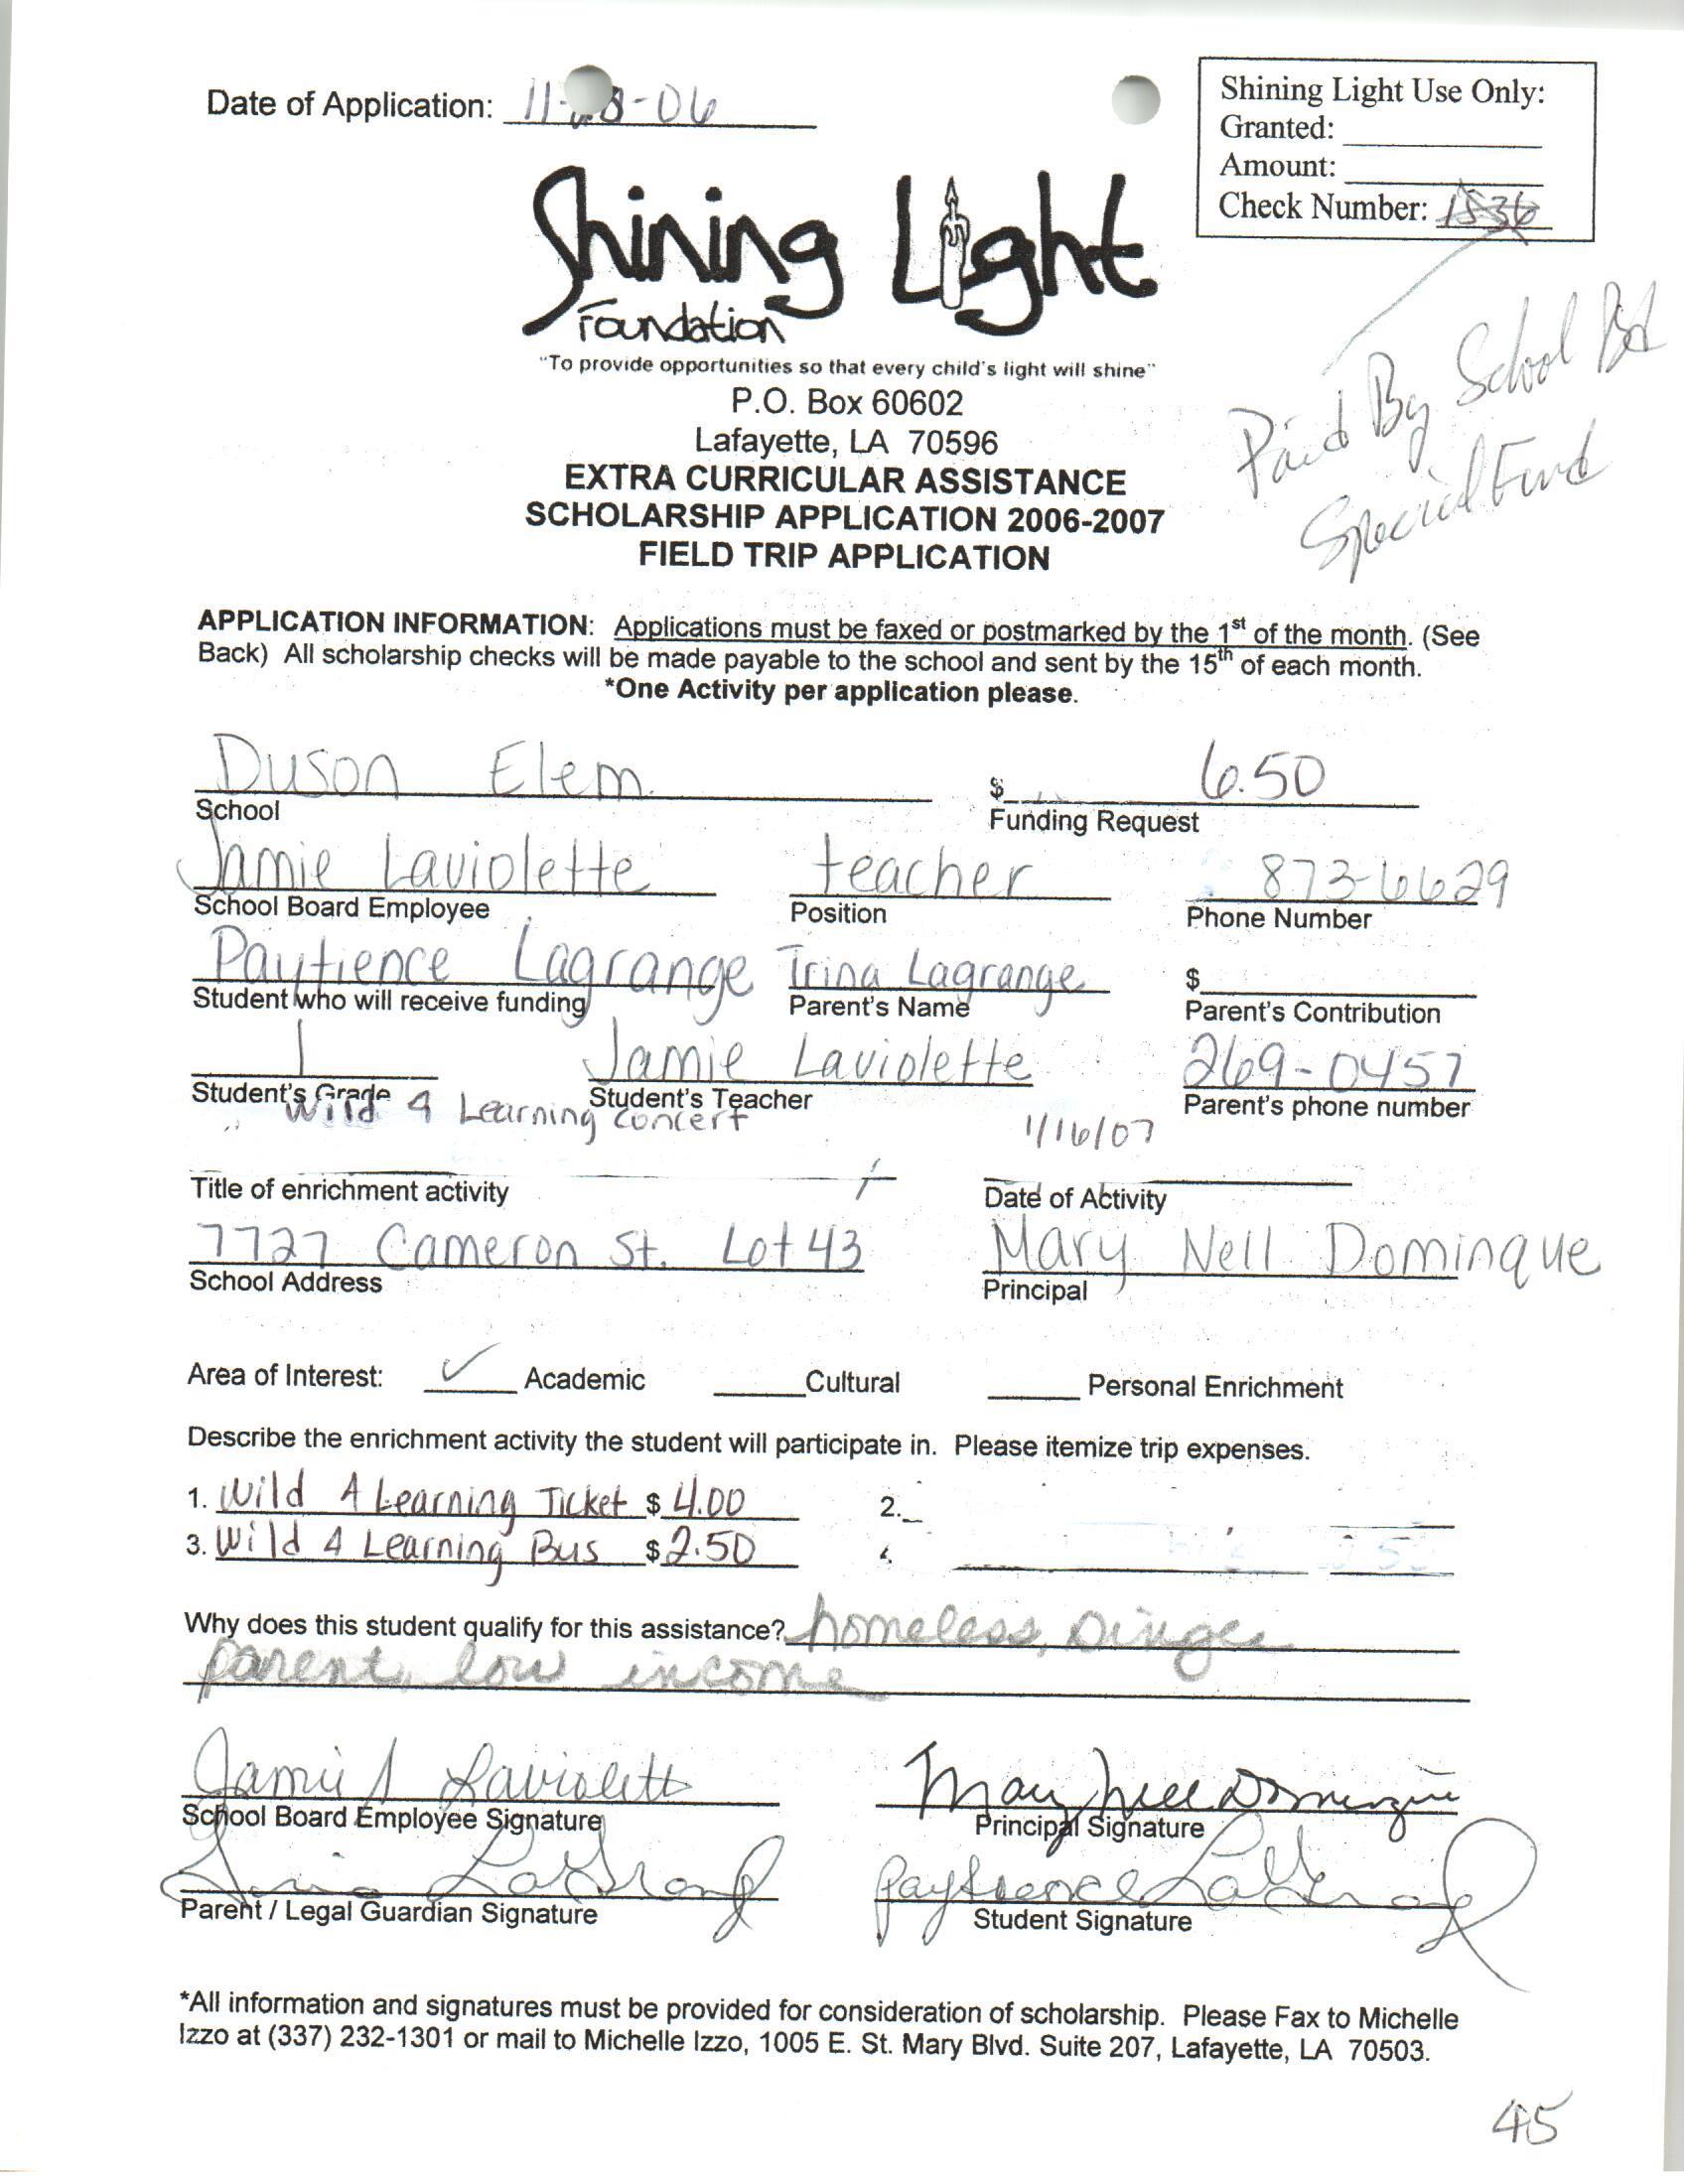 Date of Application: 11- 8-06
Shining Light Use Only:
Granted:
Amount:
Check Number: 1536
Shining Light
Foundation
"To provide opportunities so that every child's light will shine"
P.O. Box 60602
Lafayette, LA 70596
Paid By School Bd
Special Fund
EXTRA CURRICULAR ASSISTANCE
SCHOLARSHIP APPLICATION 2006-2007
FIELD TRIP APPLICATION
APPLICATION INFORMATION: Applications must be faxed or postmarked by the 1st of the month. (See
Back) All scholarship checks will be made payable to the school and sent by the 15th of each month.
*One Activity per application please.
Duson Elem. $ 6.50
School Funding Request
Jamie Laviolette teacher 873-6629
School Board Employee Position Phone Number
Paytience Lagrange Trina Lagrange $
Student who will receive funding Parent's Name Parent's Contribution
1 Jamie Laviolette 269-0457
Student's Grade Student's Teacher Parent's phone number
Wild 4 Learning Concert 1/16/07
Title of enrichment activity Date of Activity
7727 Cameron St. Lot 43 Mary Nell Dominque
School Address Principal
Area of Interest: ✓ Academic Cultural Personal Enrichment
Describe the enrichment activity the student will participate in. Please itemize trip expenses.
1. Wild 4 Learning Ticket $ 4.00 2.
3. Wild 4 Learning Bus $ 2.50
Why does this student qualify for this assistance? homeless, Single
parent, low income
Jamie Laviolette Mary Nell Dominque
School Board Employee Signature Principal Signature
Trina LaGrange Paytience LaGrange
Parent / Legal Guardian Signature Student Signature
*All information and signatures must be provided for consideration of scholarship. Please Fax to Michelle
Izzo at (337) 232-1301 or mail to Michelle Izzo, 1005 E. St. Mary Blvd. Suite 207, Lafayette, LA 70503.
45